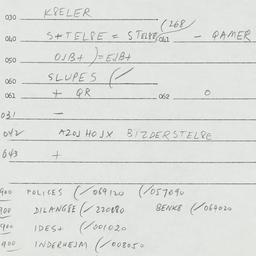 030 KRELER
040 S+TELPE = STELPE (/268/ 041 - GAMER
050 OJB+ ) = EJB+
060 SLUPES (/
061 + QR 062 O
031 -
042 AZOJHOJX BIZDERSTELPE
043 +
900 POLICES (/069120 (/057090
900 DILANGEE (/220880 BENKE (/064020
900 IDES+ (/001020
900 INDERHEJM (/008050